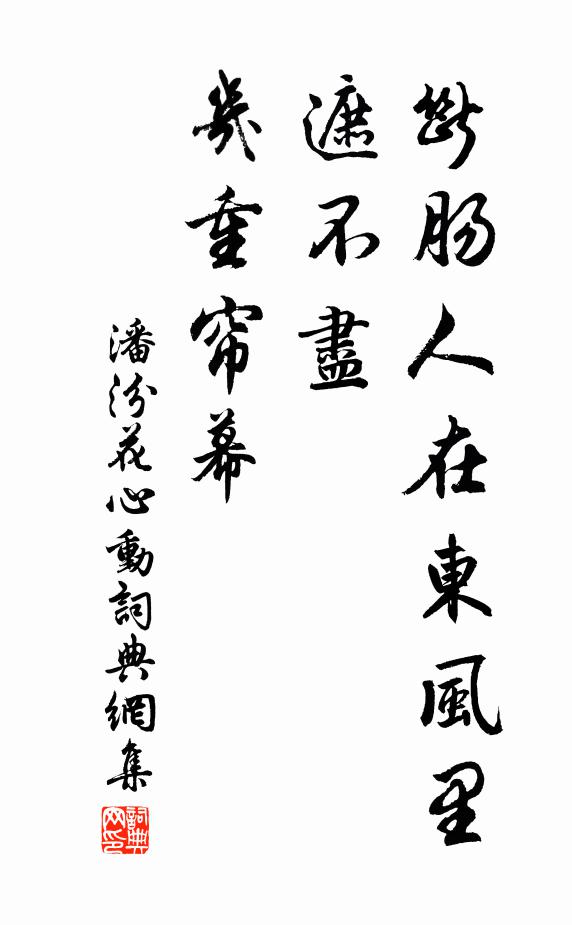 斷腸人在東風里
遮不盡
幾重帘幕
潘汾花心動詞典網集
詞典网印